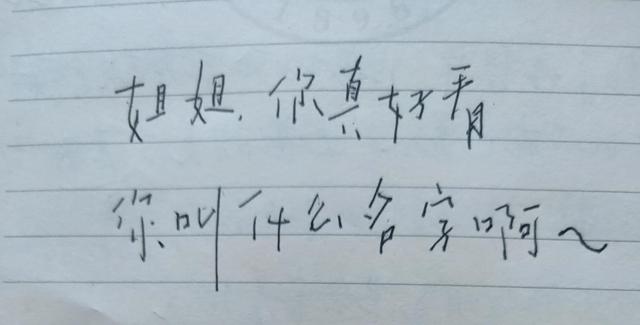 姐姐,你真好看
你叫什么名字啊~